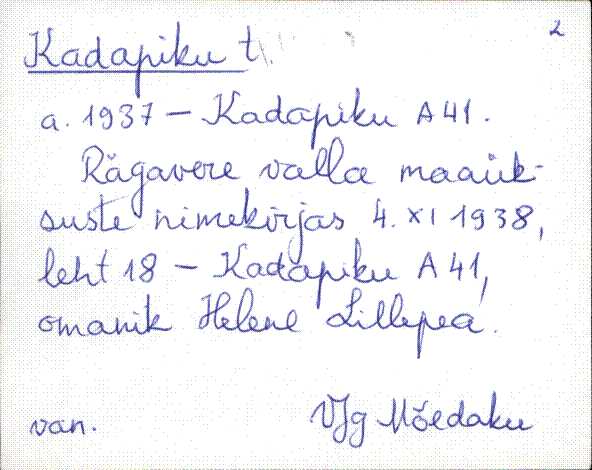 2
Kadapiku t
a. 1937 – Kadapiku A 41.
Rägavere valla maaük-
suste nimekirjas 4. XI 1938,
leht 18 – Kadapiku A 41,
omanik Helene Lillepea.
van. VJg Mõedaku